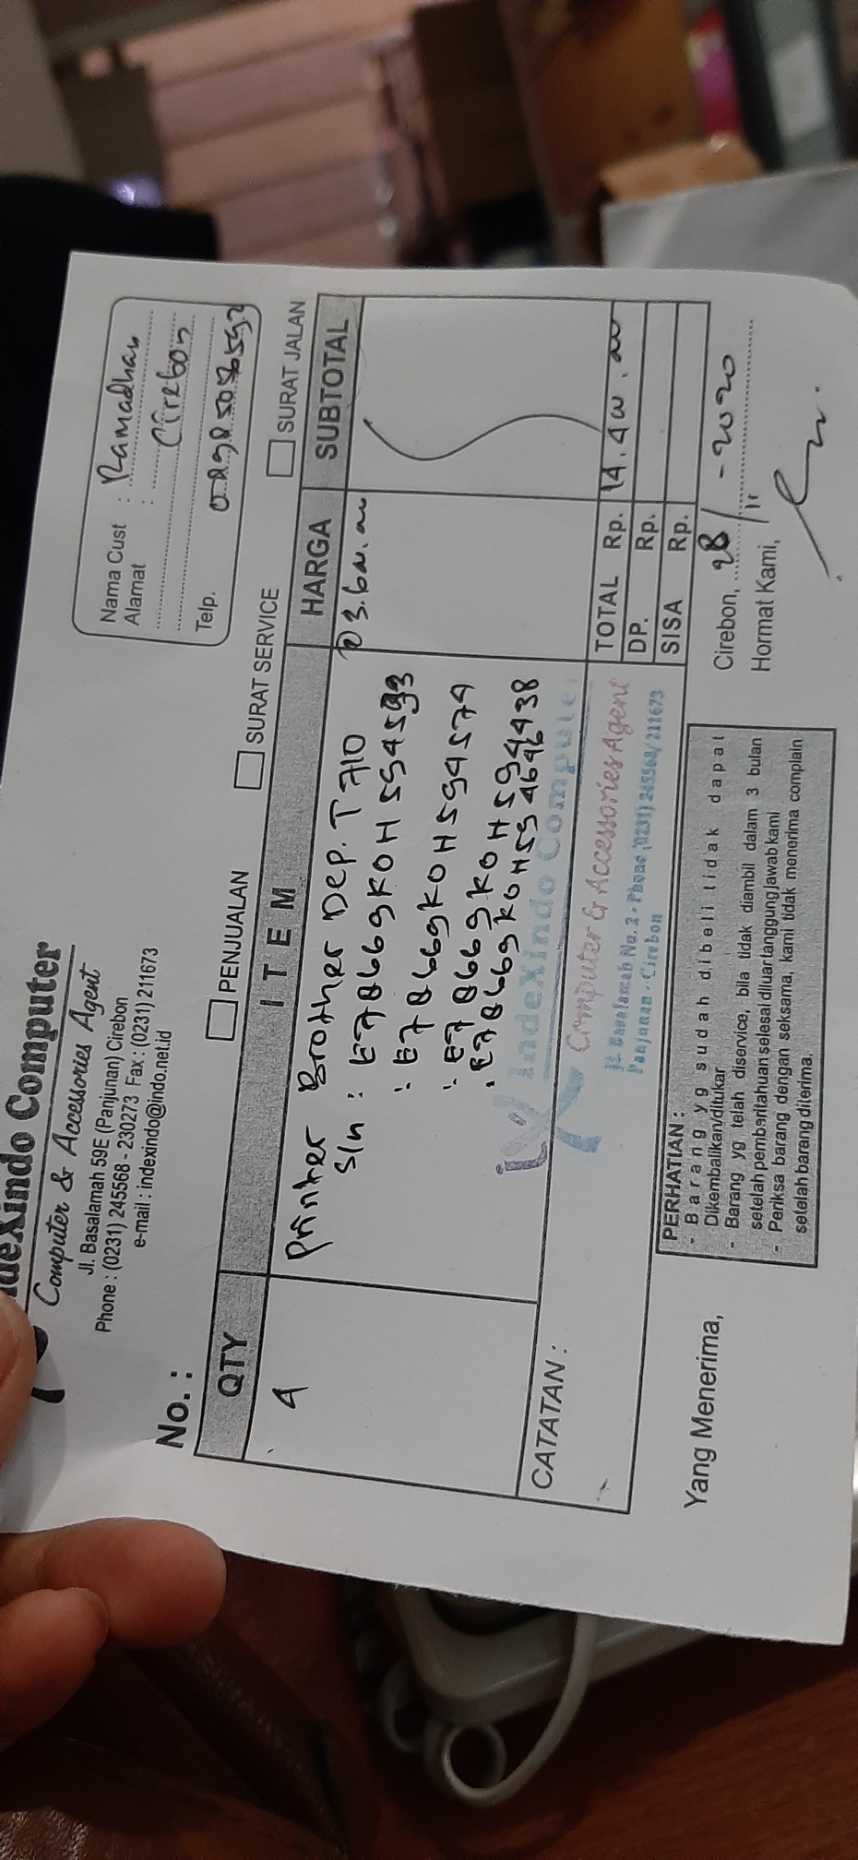 Indexindo Computer
Computer & Accessories Agent
Jl. Basalamah 59E (Panjunan) Cirebon
Phone : (0231) 245568 - 230273 Fax : (0231) 211673
e-mail : indexindo@indo.net.id
Nama Cust : Ramadhan
Alamat : Cirebon
Telp.
No. :
PENJUALAN SURAT SERVICE SURAT JALAN
QTY ITEM HARGA SUBTOTAL
4 Printer Brother Dcp. T710 @3.600.000
S/n : E78669K0H594593
: E78669K0H594574
: E78669K0H594438
: E78669K0H594646
CATATAN :
Indexindo Computer
Computer & Accessories Agent
Jl. Basalamah No. 2 - Phone (0231) 245568/211673
Panjunan - Cirebon
TOTAL Rp. 14.400.000
DP. Rp.
SISA Rp.
Yang Menerima,
PERHATIAN :
- Barang yg sudah dibeli tidak dapat
Dikembalikan/ditukar
- Barang yg telah diservice, bila tidak diambil dalam 3 bulan
setelah pembaritahuan selesai diluar tanggung jawab kami
- Periksa barang dengan seksama, kami tidak menerima complain
setelah barang diterima.
Cirebon, 28/11-2020
Hormat Kami,